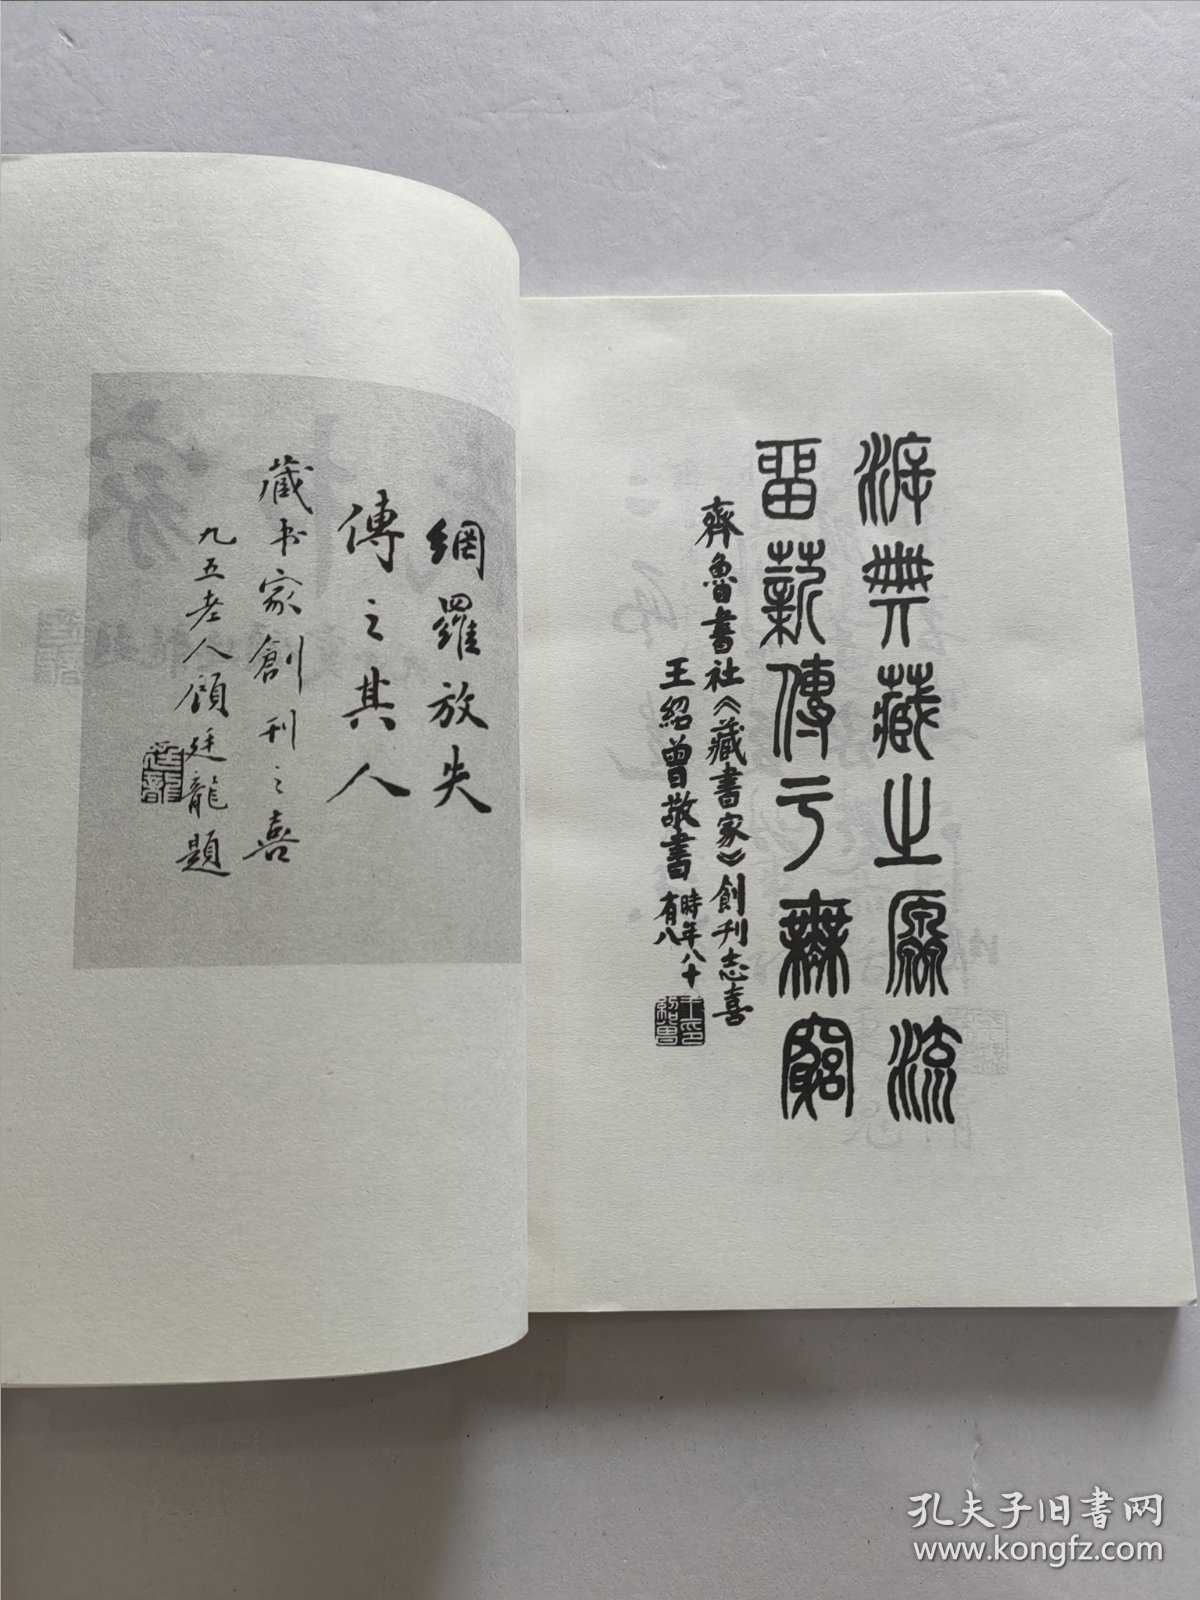 網羅放失
傳之其人
藏书家創刊之喜
九五老人顧廷龍題
廷龍
泝典藏之源流
留薪傳于無窮
齊魯書社《藏書家》創刊志喜
王紹曾敬書
時年八十
有八
王印紹曾
孔夫子旧书网
www.kongfz.com